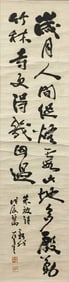 歲月人間促煙霞此地多殷勤
竹林寺更得幾回過
朱放詩